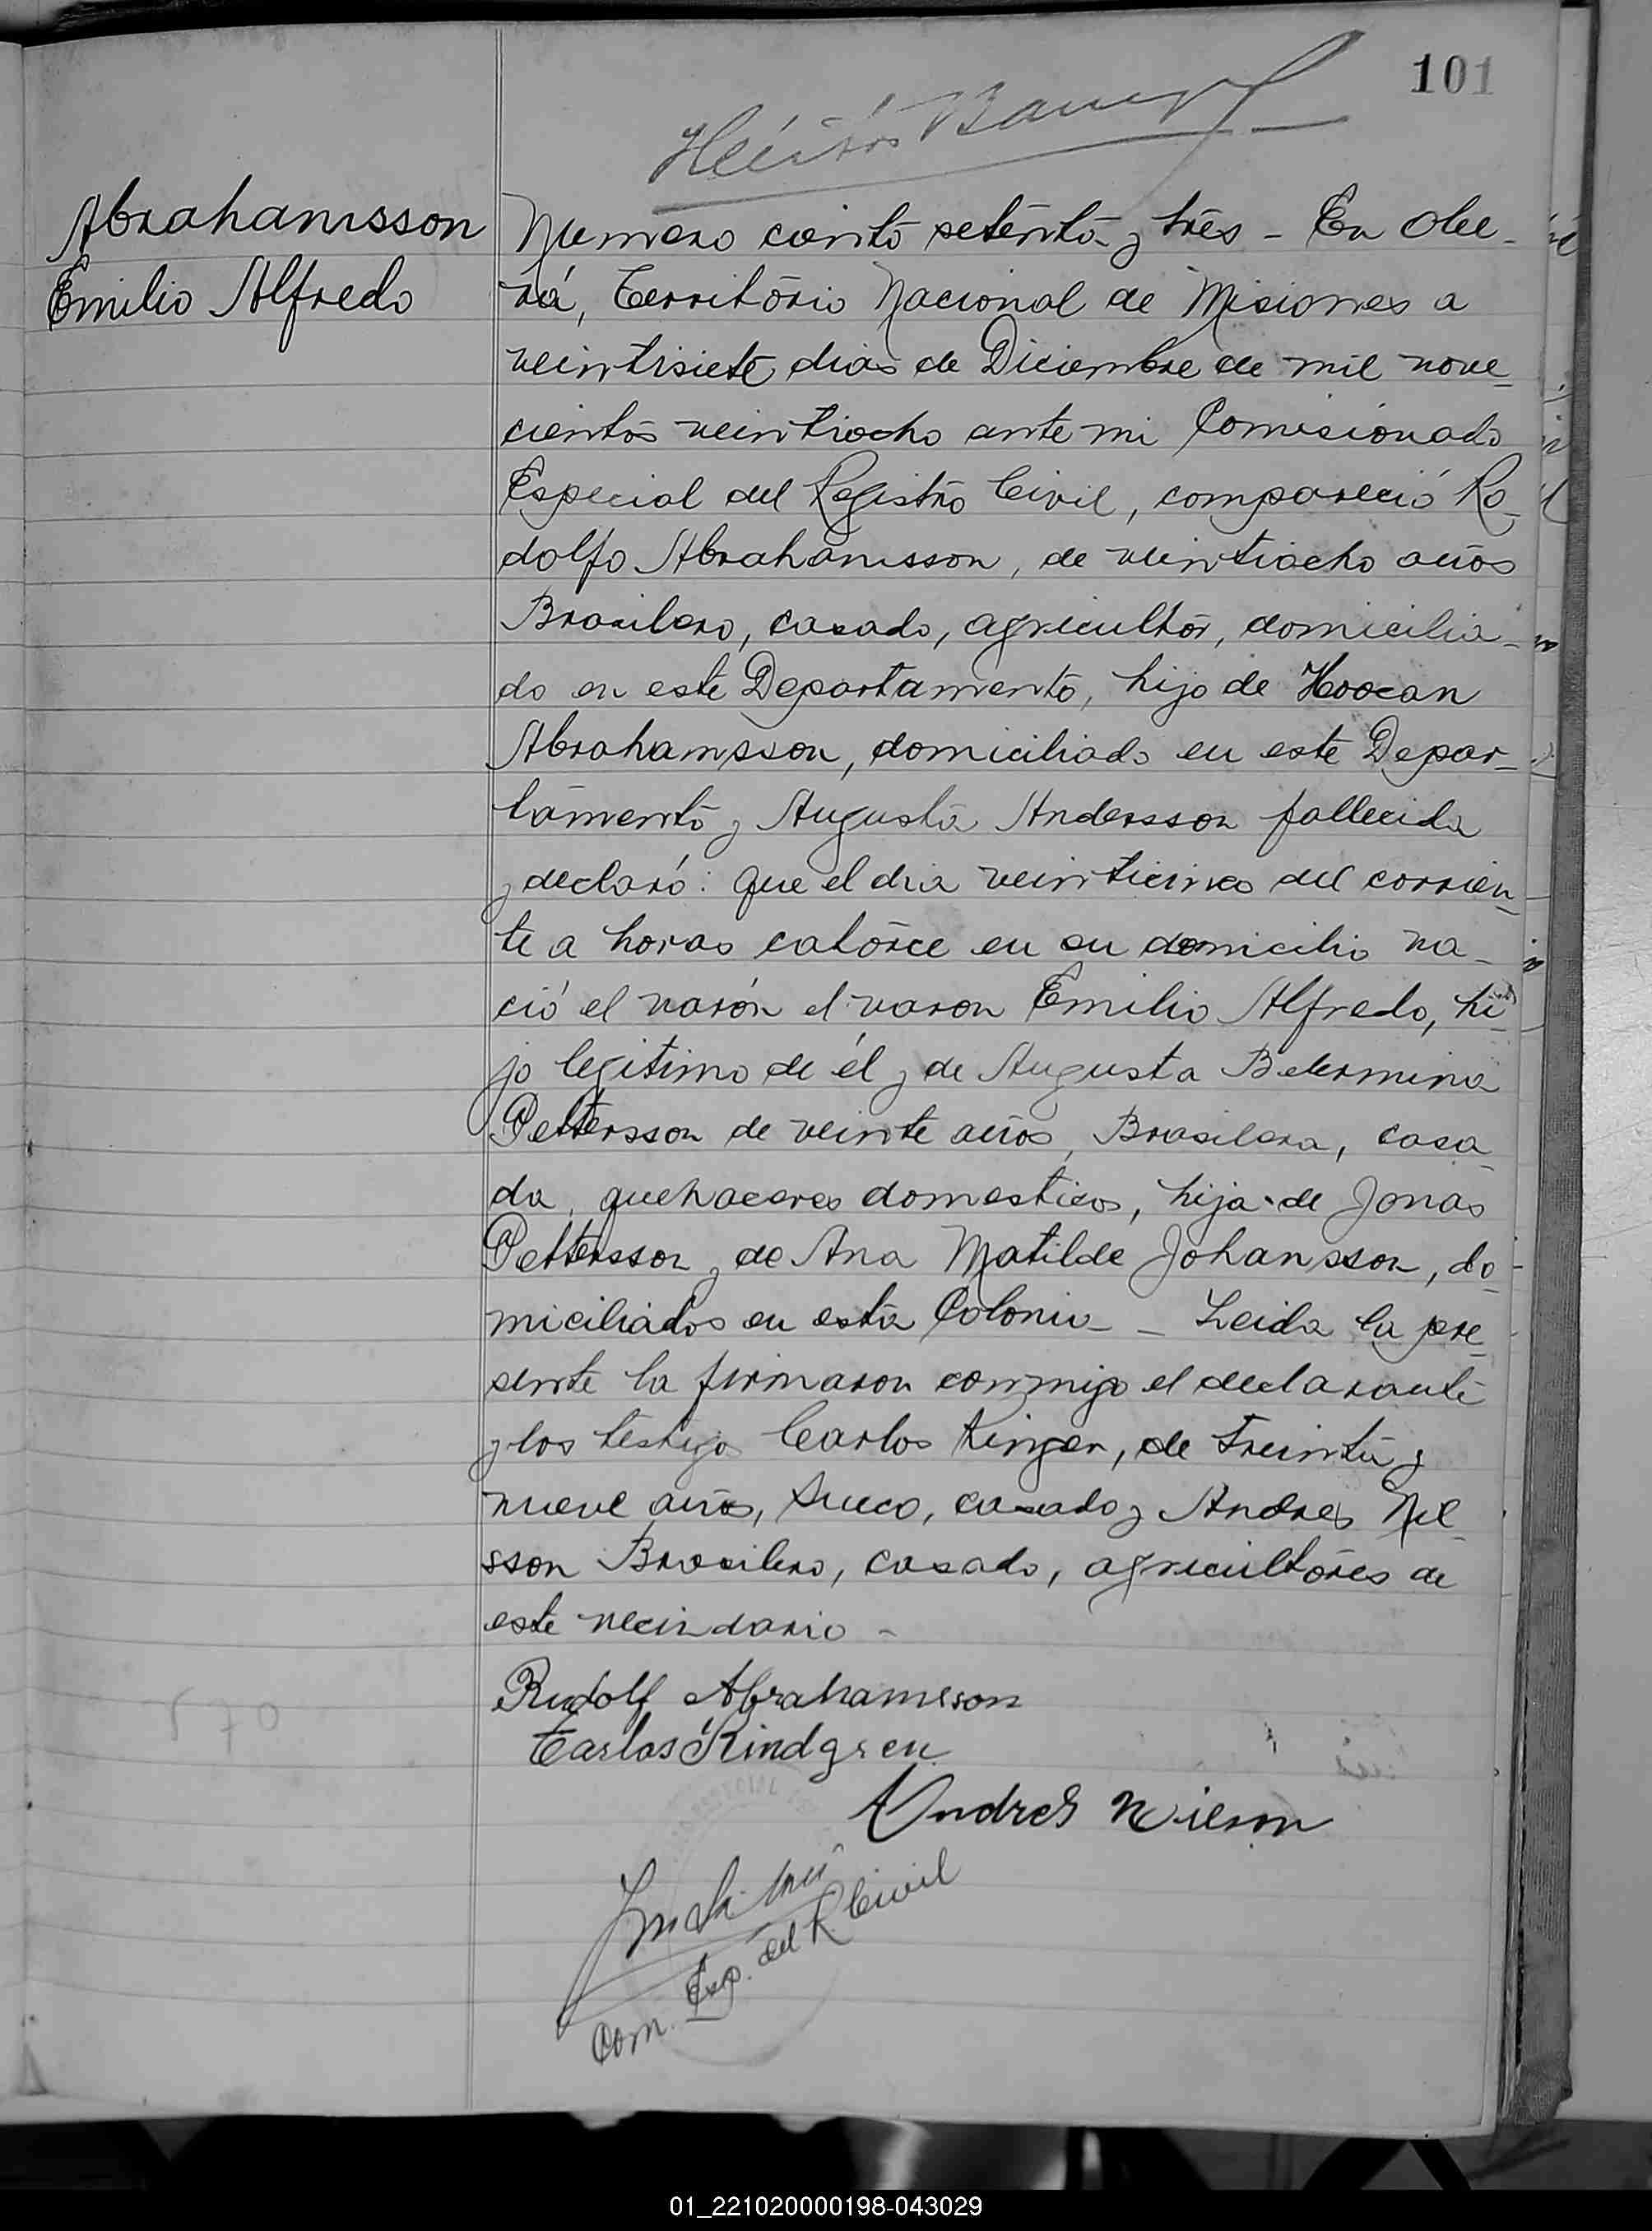 101
Abrahamsson
Emilio Alfredo
Numero ciento setenta y tres - En Obe-
rá, Territorio Nacional de Misiones a
veintisiete dias de Diciembre de mil nove-
cientos veintiocho ante mi Comisionado
Especial del Registro Civil, compareció Ro-
dolfo Abrahamsson, de veintiocho años
Brasilero, casado, agricultor, domicilia-
do en este Departamento, hijo de
Abrahamsson, domiciliado en este Depar-
tamento y Augusta Andersson fallecida
y declaró: que el dia veinticinco del corrien-
te a horas catorce en su domicilio na-
ció el varón el varon Emilio Alfredo, hi-
jo legitimo de él y de Augusta
Pettersson de veinte años, Brasilera, casa-
da, quehaceres domesticos, hija de Jonas
Pettersson y de Ana Matilde Johansson, do-
miciliados en esta Colonia - Leida la pre-
sente la firmaron conmigo el declarante
y los testigos Carlos Ringer, de treinta y
nueve años, Sueco, casado y Andres Nil-
sson Brasilero, casado, agricultores de
este vecindario -
Rudolf Abrahamsson
Carlos Kindgren
Andres Nilson
Com. Esp. del R. Civil
570
01_221020000198-043029